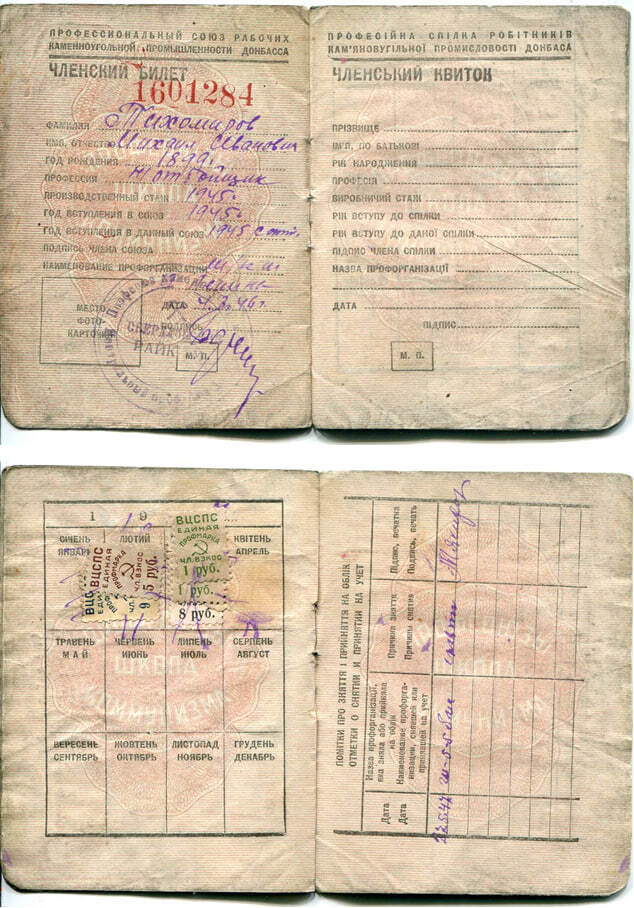 ПРОФЕССИОНАЛЬНЫЙ СОЮЗ РАБОЧИХ
КАМЕННОУГОЛЬНОЙ ПРОМЫШЛЕННОСТИ ДОНБАССА
ЧЛЕНСКИЙ БИЛЕТ
1601284
ФАМИЛИЯ Тихомиров
ИМЯ, ОТЧЕСТВО Михаил Иванович
ГОД РОЖДЕНИЯ 1899
ПРОФЕССИЯ
ПРОИЗВОДСТВЕННЫЙ СТАЖ 1945г
ГОД ВСТУПЛЕНИЯ В СОЮЗ 1945г
ГОД ВСТУПЛЕНИЯ В ДАННЫЙ СОЮЗ 1945
ПОДПИСЬ ЧЛЕНА СОЮЗА
НАИМЕНОВАНИЕ ПРОФОРГАНИЗАЦИИ
МЕСТО
ФОТО-
КАРТОЧКИ
ДАТА
ПОДПИСЬ
М. П.
ПРОФЕСІЙНА СПІЛКА РОБІТНИКІВ
КАМ'ЯНОВУГІЛЬНОЇ ПРОМИСЛОВОСТІ ДОНБАСА
ЧЛЕНСЬКИЙ КВИТОК
ПРІЗВИЩЕ
ІМ'Я, ПО БАТЬКОВІ
РІК НАРОДЖЕННЯ
ПРОФЕСІЯ
ВИРОБНИЧИЙ СТАЖ
РІК ВСТУПУ ДО СПІЛКИ
РІК ВСТУПУ ДО ДАНОЇ СПІЛКИ
ПІДПИС ЧЛЕНА СПІЛКИ
НАЗВА ПРОФОРГАНІЗАЦІЇ
ДАТА
ПІДПИС
М. П.
1 9
СІЧЕНЬ
ЯНВАРЬ
ЛЮТИЙ
КВІТЕНЬ
АПРЕЛЬ
ВЦСПС
ЕДИНАЯ
ПРОФМАРКА
ЧЛ. ВЗНОС
5 руб.
ВЦСПС
ЕДИНАЯ
ПРОФМАРКА
ЧЛ. ВЗНОС
1 руб.
1 руб.
8 руб.
ТРАВЕНЬ
МАЙ
ЧЕРВЕНЬ
ИЮНЬ
ЛИПЕНЬ
ИЮЛЬ
СЕРПЕНЬ
АВГУСТ
ВЕРЕСЕНЬ
СЕНТЯБРЬ
ЖОВТЕНЬ
ОКТЯБРЬ
ЛИСТОПАД
НОЯБРЬ
ГРУДЕНЬ
ДЕКАБРЬ
ПОМІТКИ ПРО ЗНЯТТЯ І ПРИЙНЯТТЯ НА ОБЛІК
ОТМЕТКИ О СНЯТИИ И ПРИНЯТИИ НА УЧЕТ
Дата
Дата
Назва профорганізації,
яка зняла або прийняла
на облік
Наименование профорга-
низации, снявшей или
принявшей на учет
Причини зняття
Причины снятия
Підпис, печатка
Подпись, печать